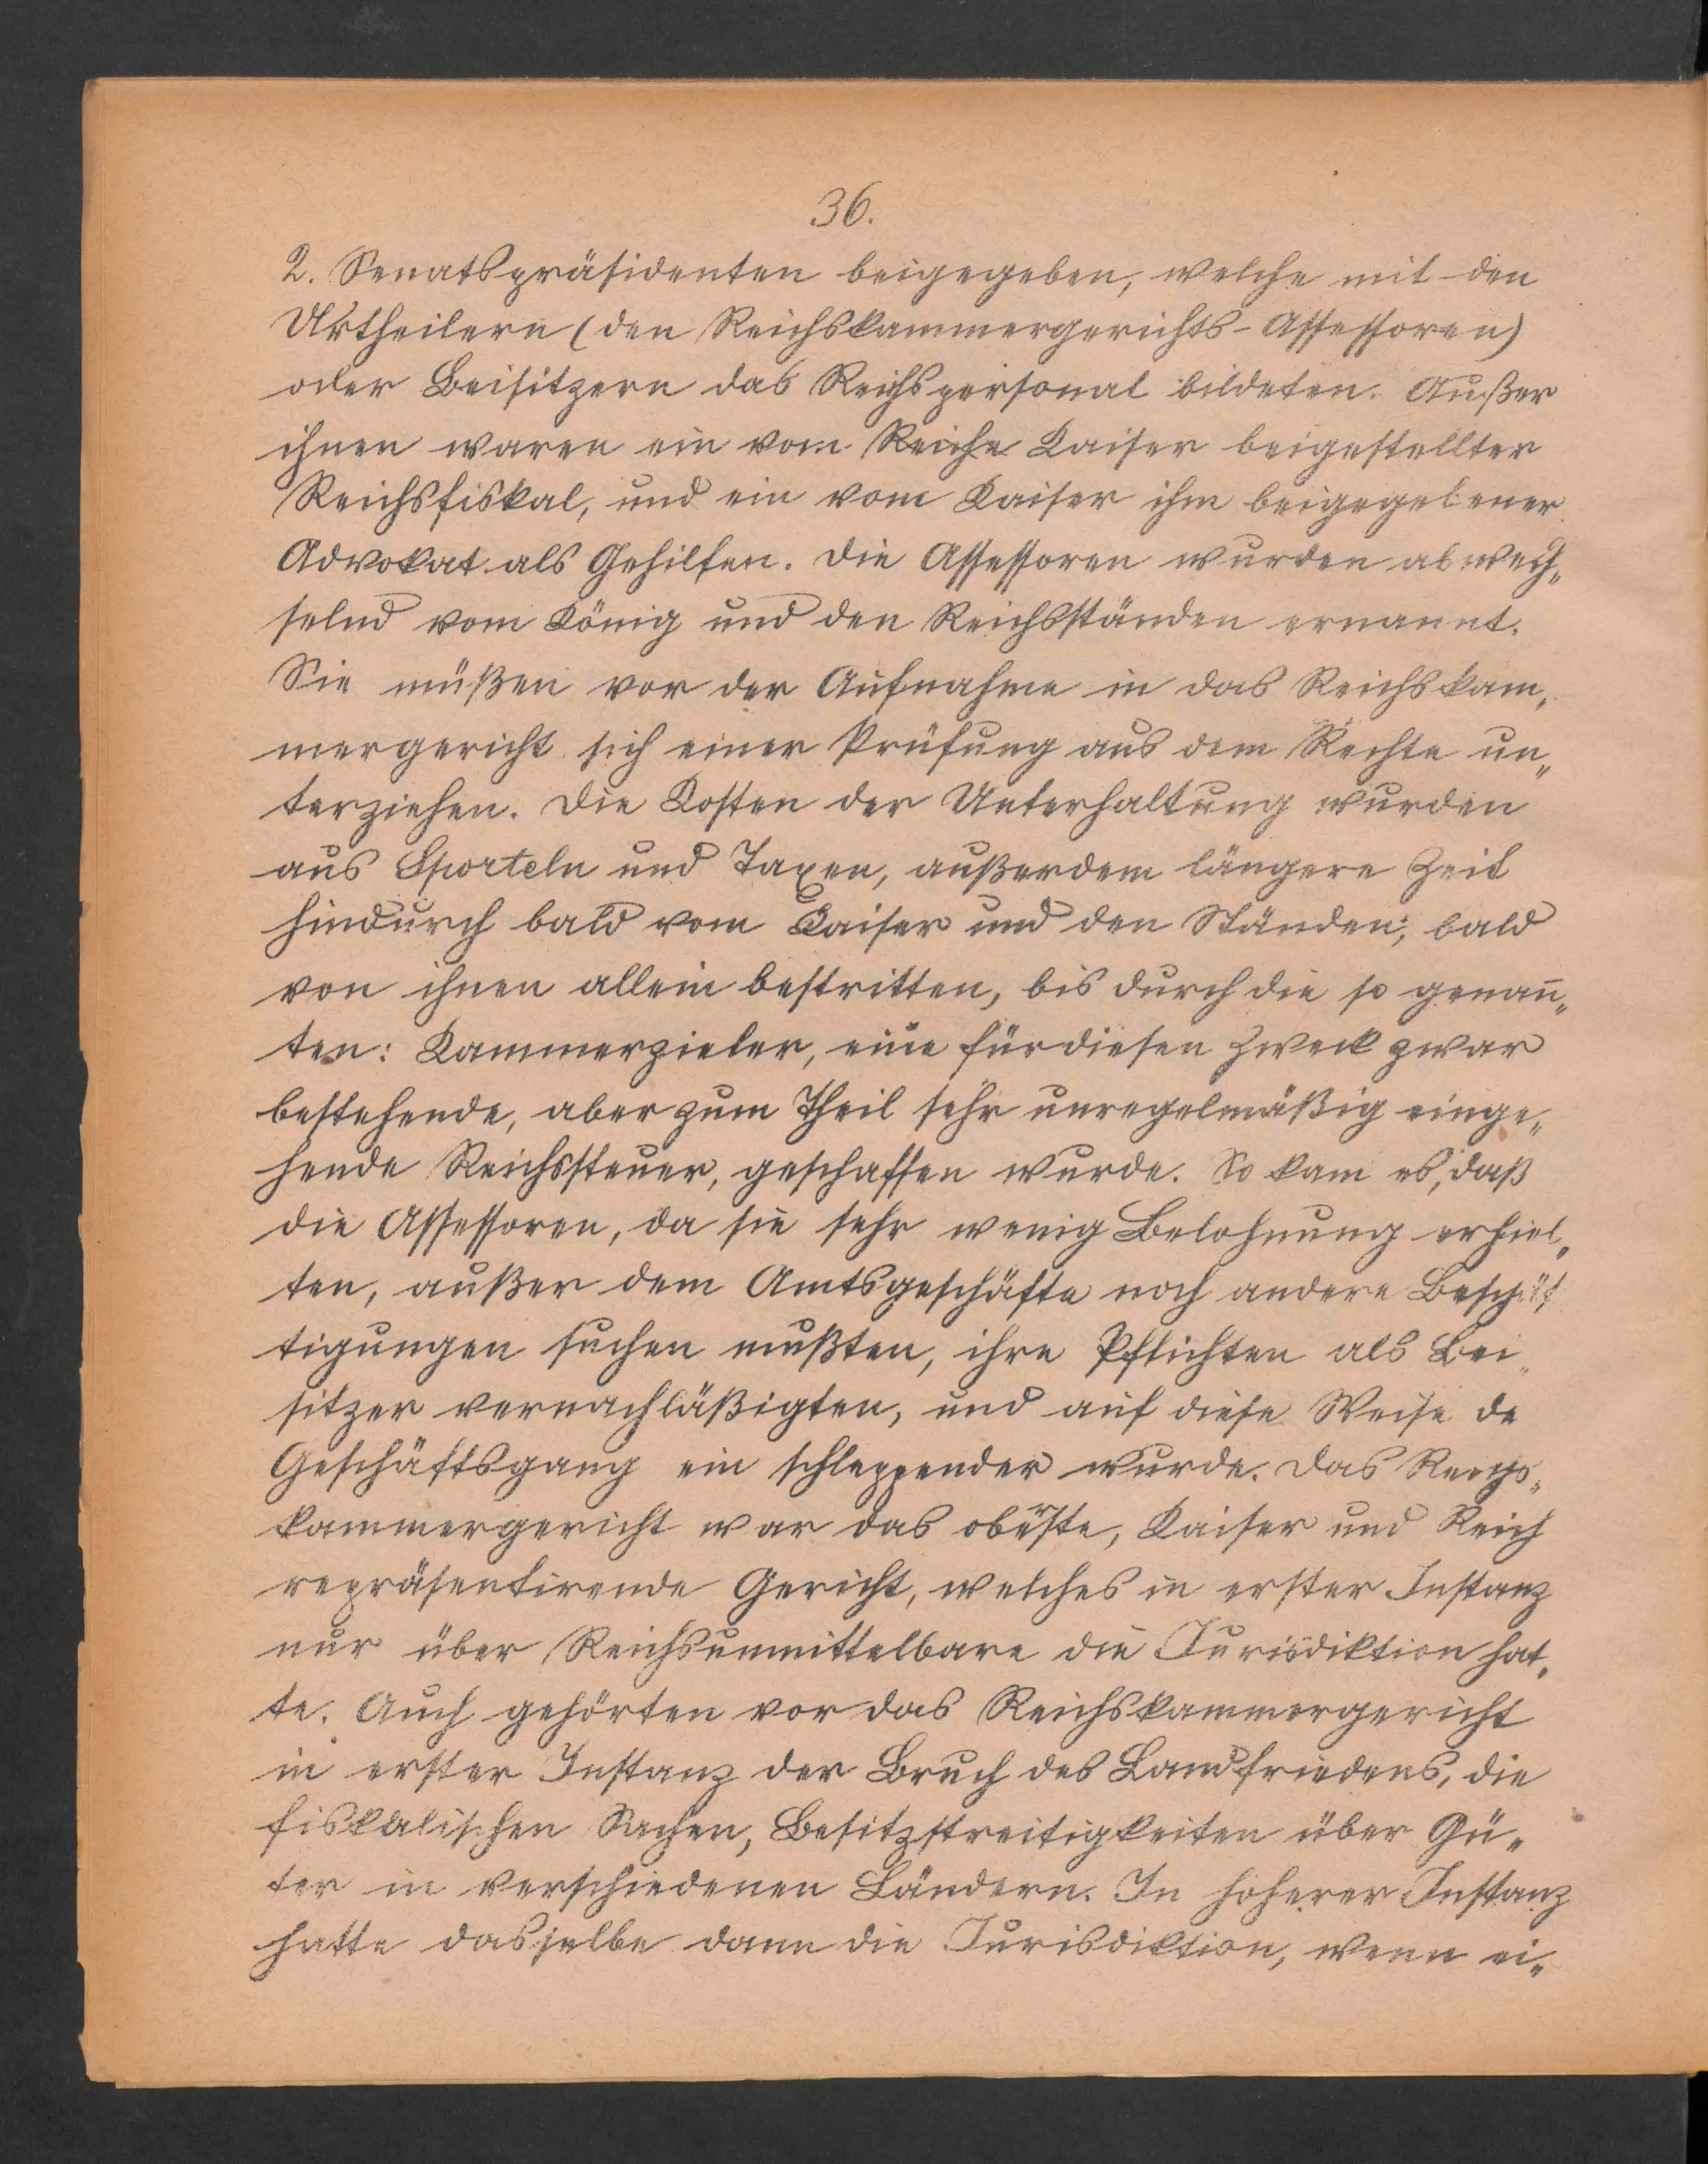 36.
2. Senatspräsidenten beigegeben, welche mit den
Urtheilern (den Reichskammergerichts-Assessoren)
oder Beisitzern das Reichspersonal bildeten. Außer
ihnen waren ein vom Reiche Kaiser beigestellter
Reichsfiskal, und ein vom Kaiser ihm beigegebener
Advokat als Gehilfen. Die Assessoren wurden abwech„
selnd vom König und den Reichsständen ernannt.
Sie müßen vor der Aufnahme in das Reichskam„
mergericht sich einer Prüfung aus dem Rechte un„
terziehen. Die Kosten der Unterhaltung wurden
aus Sporteln und Taxen, außerdem längere Zeit
hindurch bald vom Kaiser und den Ständen, bald
von ihnen allein bestritten, bis durch die so genan̄„
ten: Kammerzieler, eine für diesen Zweck zwar
bestehende, aber zum Theil sehr unregelmäßig einge„
hende Reichssteuer, geschaffen wurde. So kam es, daß
die Assessoren, da sie sehr wenig Belohnung erhiel„
ten, außer dem Amtsgeschäfte noch andere Beschäf
tigungen suchen mußten, ihre Pflichten als Bei„
sitzer vernachläßigten, und auf diese Weise de
Geschäftsgang ein schleppender wurde. Das Reichs„
kammergericht war das oberste, Kaiser und Reich
repräsentirende Gericht, welches in erster Instanz
nur über Reichsunmittelbare die Jurisdiktion hat„
te. Auch gehörten vor das Reichskammergericht
in erster Instanz der Bruch des Landfriedens, die
fiskalischen Sachen, Besitzstreitigkeiten über Gü„
ter in verschiedenen Ländern. In hoherer Instanz
hatte dasselbe dann die Jurisdiktion, wenn ei„